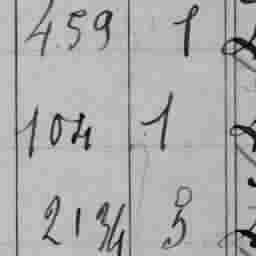 459 1
104 1
2134 3